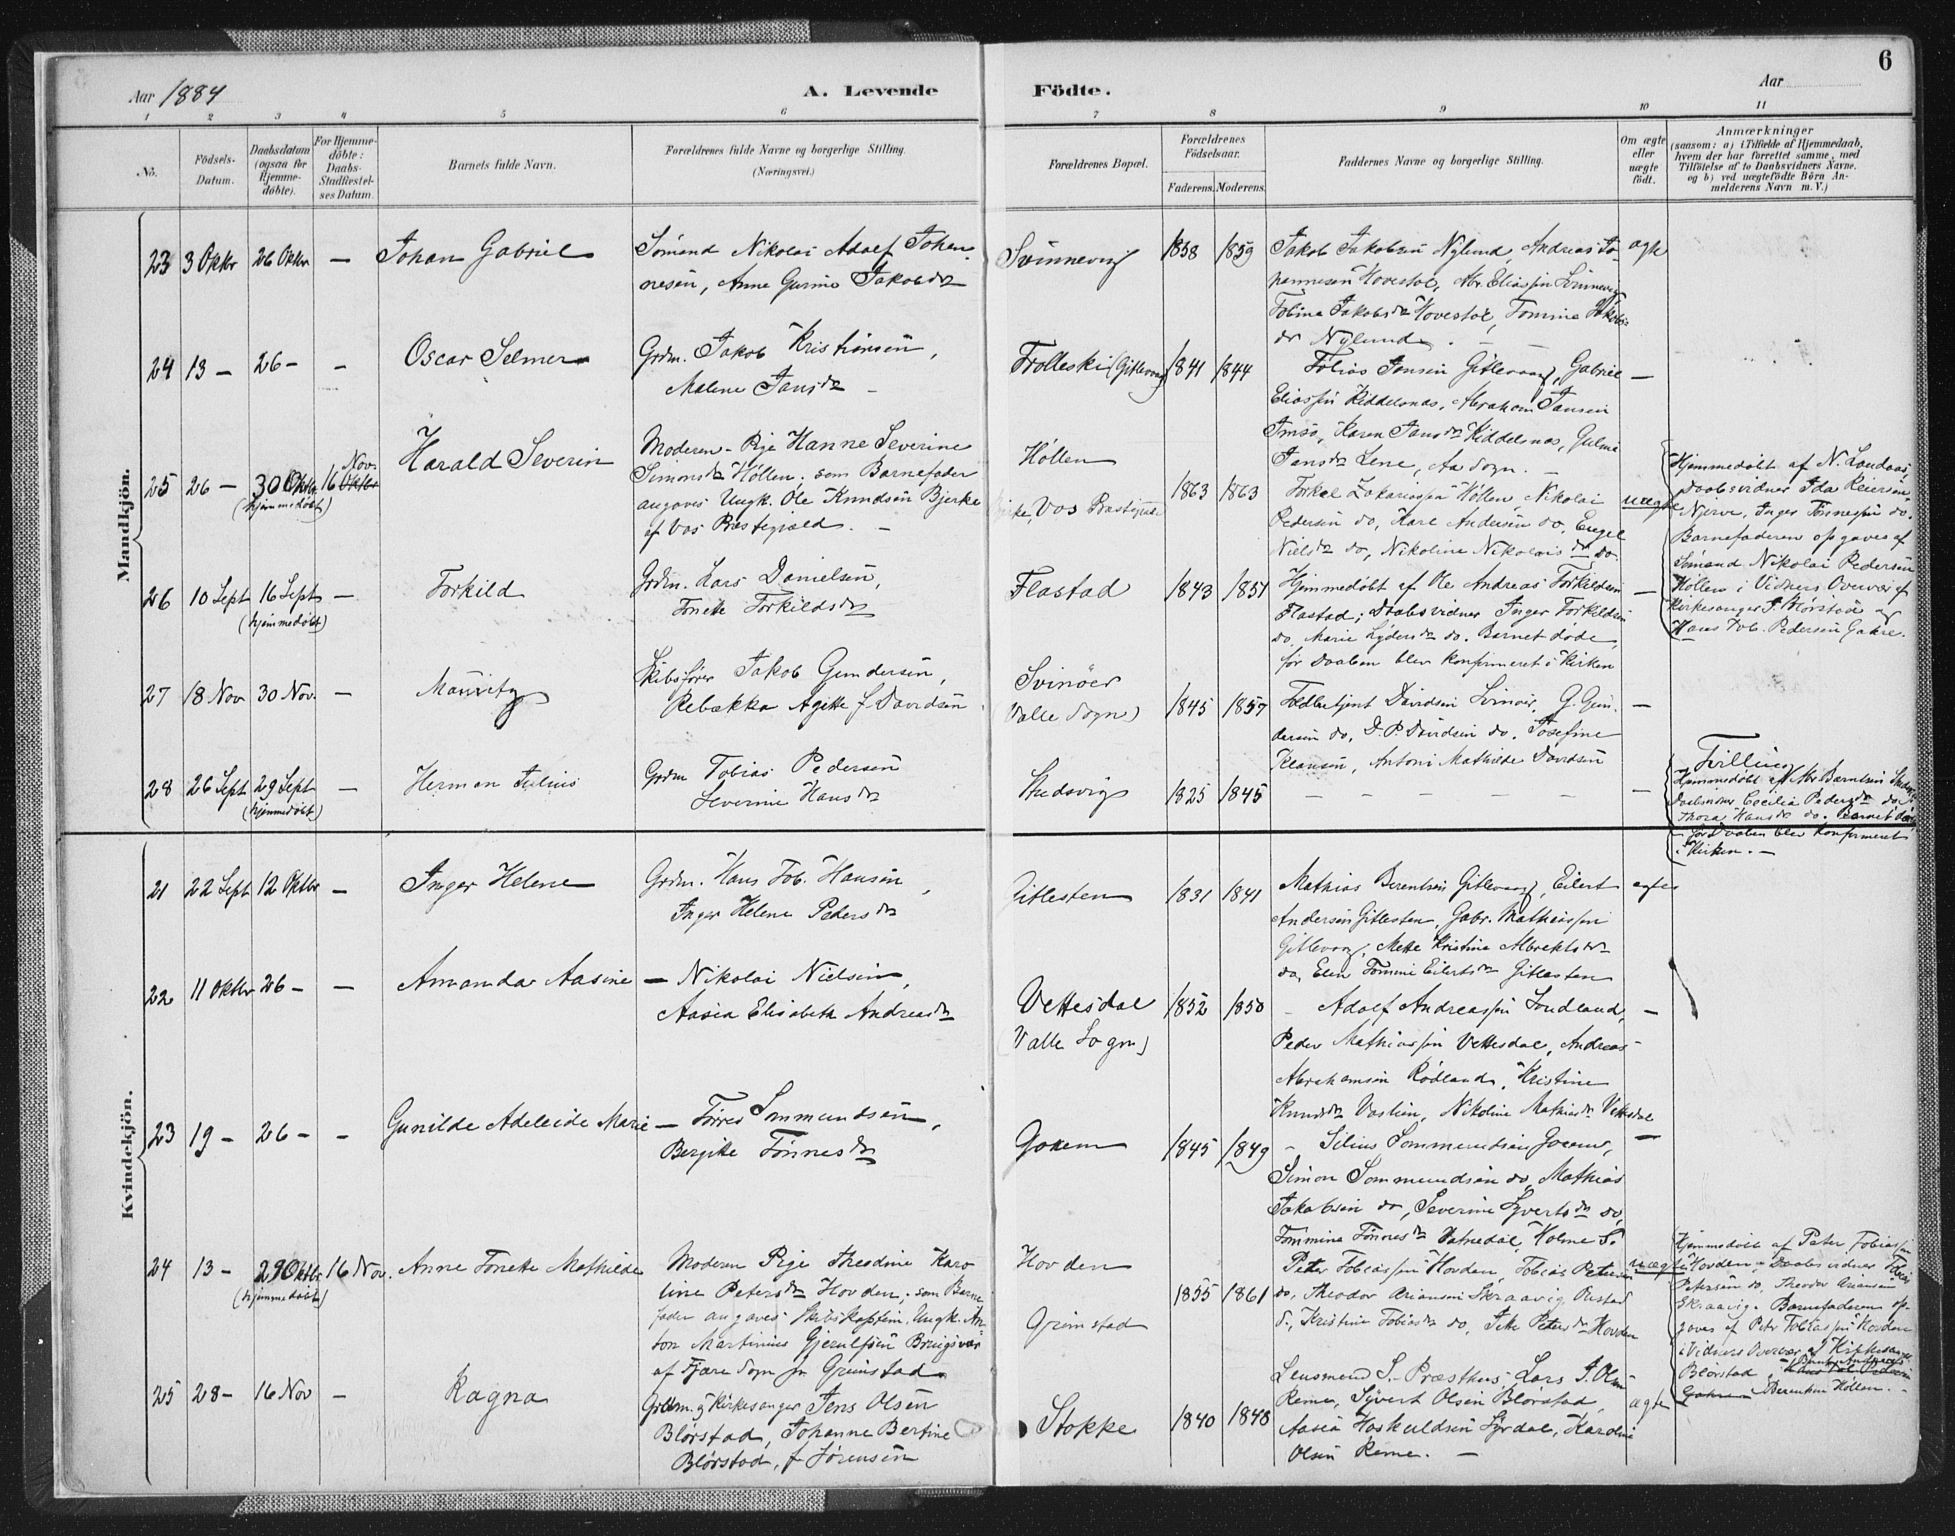 6
Aar 1884
A. Levende Fødte.
Aar
1 2 3 4 5 6 7 8 9 10 11
No.
Födsels-Datum.
Daabsdatum (ogsaa for Hjemme-döbte).
For Hjemme-döbte: Daabs-Stadfæstel-ses Datum.
Barnets fulde Navn.
Forældrenes fulde Navne og borgerlige Stilling. (Næringsvei.)
Forældrenes Bopæl.
Forældrenes Födselsaar.
Faderens. Moderens.
Faddernes Navne og borgerlige Stilling.
Om ægte eller uægte födt.
Anmærkninger
(saasom: a) i Tilfælde af Hjemmedaab,
hvem der har forrettet samme, med
Tilföielse af to Daabsvidners Navne.
og b) ved uægtefödte Börn An-
melderens Navn m. V.)
Mandkjön.
23 3 Oktbr 26 Oktbr — Johan Gabriel
Sømand Nikolai Adolf Johan-
nesen, Anne Gurine Jakobsdr
Svinnevig 1858 1859
Jakob Jakobsen Nylund, Andreas Jo-
hannesen Hovestøl, Abr. Eliassen Svinnevig
Tobine Jakobsdr Hovestøl, Tomine Jakobs-
dr Nylund. ægte
24 13 — 26 — — Oscar Selmer
Grdm. Jakob Kristiansen,
Malene Jansdr —
Trolleski (Gitlevaag) 1841 1844
Tobias Jansen Gitlevaag, Gabriel —
Eliassen Kiddelsnæs, Abraham Jansen
Imsø, Karen Jansdr Kiddelsnæs, Guline
Jansdr Lene, Aa Sogn. —
25 26 — 30 Oktbr (hjemmedøbt) 16 Nov. Oktbr Harald Severin
Moderen - Pige Hanne Severine
Simonsdr Høllen; som Barnefader
angaves Ungk. Ole Knudsen Bjerke
af Vos Præstegjæld. —
Høllen
Bjerke, Vos Præstegjæld 1863 1863
Torkel Zakariassen Høllen, Nikolai
Pedersen do, Karl Andersen do, Engel
Nielsdr do, Nikoline Nikolaisdr do. uægte
Hjemmedøbt af N. Londaas,
Daabsvidner Ida Reiersen
Njerve, Inger Tønnessen do.
Barnefaderen opgaves af
Sømand Nikolai Pedersen
Høllen i Vidners Overvær af
Kirkesanger J. Blørstad og
Hans Tob. Pedersen Gahre.
26 10 Sept 16 Sept (hjemmedøbt) — Torkild
Grdm. Lars Danielsen,
Tonette Torkildsdr
Flastad 1843 1851
Hjemmedøbt af Ole Andreas Torkildsen —
Flastad; Daabsvidner Inger Torkildsen
do, Marie Lydersdr do. Barnet døde
før Daaben blev konfirmeret i Kirken
27 18 Nov 30 Nov. — Mauritz
Skibsfører Jakob Gundersen,
Rebekka Agathe f. Davidsen
Svinøer
(Valle Sogn) 1845 1857
Toldbetjent Davidsen Svinøer, G. Gun- —
dersen do, D. P. Davidsen do. Josefine
Klausen, Antoni Mathilde Davidsen
28 26 Sept 29 Sept (hjemmedøbt) — Herman Julius
Grdm Tobias Pedersen
Severine Hansdr
Skedsvig 1825 1845
— — — — — — —
Tvilling
Hjemmedøbt af Abr. Berntsen Skedsvig
Daabsvidner Cecilia Pedersdr do,
Thora Hansdr do. Barnet døde
før Daaben blev konfirmeret
i Kirken. —
Kvindekjön.
21 22 Sept 12 Oktbr — Inger Helene
Grdm. Hans Tob. Hansen,
Inger Helene Pedersdr
Gitlesten 1831 1841
Mathias Berentsen Gitlevaag, Eilert ægte
Andersen Gitlesten, Gabr. Mathiassen
Gitlevaag, Mette Kristine Albrektsdr
do, Elen Tomine Eilertsdr Gitlesten
22 11 Oktbr 26 — — Amanda Aasine
— Nikolai Nielsen,
Aasia Elisabeth Andreasdr
Vettesdal
(Valle Sogn) 1852 1850
— Adolf Andreassen Sondland, —
Peder Mathiassen Vettesdal, Andreas
Abrahamsen Rødland, Kristine
Knudsdr Voslien, Nikoline Mathiasdr Vettesdal
23 19 — 26 — — Gunilde Adeleide Marie
— Torres Sommundsen,
Bergitte Tønnesdr
Goxem 1845 1849
— Silius Sommundsen Goxem, —
Simon Sommundsen do, Mathias
Jakobsen do, Severine Syvertsdr do,
Tommine Tønnesdr Valnedal, Holme S.
24 13 — 29 Oktbr (hjemmedøbt) 16 Nov. Anne Tonette Mathilde
Moderen Pige Theodine Karo-
line Petersdr Hovden; som Barne-
fader angaves: Skibskaptein, Ungk. An-
ton Martinius Gjerulfsen Bringsvær
af Fjære Sogn pr Grimstad
Hovden
Grimstad 1855 1861
Peter Tobiassen Hovden, Tobias Petersen uægte
do, Theodor Ariansen Skraavig, Rustad
S., Kristine Tobiasdr do, Petersdr Hovden
Hjemmedøbt af Peter Tobiassen
Hovden - Daabsvidner Tobias
Petersen do, Theodor Ariansen
Skraavig. Barnefaderen op-
gaves af Peter Tobiassen Hovden
i Vidners Overvær af Kirkesanger
Blørstad
Gahre Berentsen Høllen. —
25 28 — 16 Nov — Ragna
Grdm. og Kirkesanger Jens Olsen
Blørstad, Johanne Bertine
Blørstad, f. Sørensen
Stokke 1840 1848
Lensmand S. Præsthus, Lars J. Olsen
Reme, Syvert Olsen Blørstad, ægte
Aasia Hoskuldsen Syrdal, Karoline
Olsen Reme. —